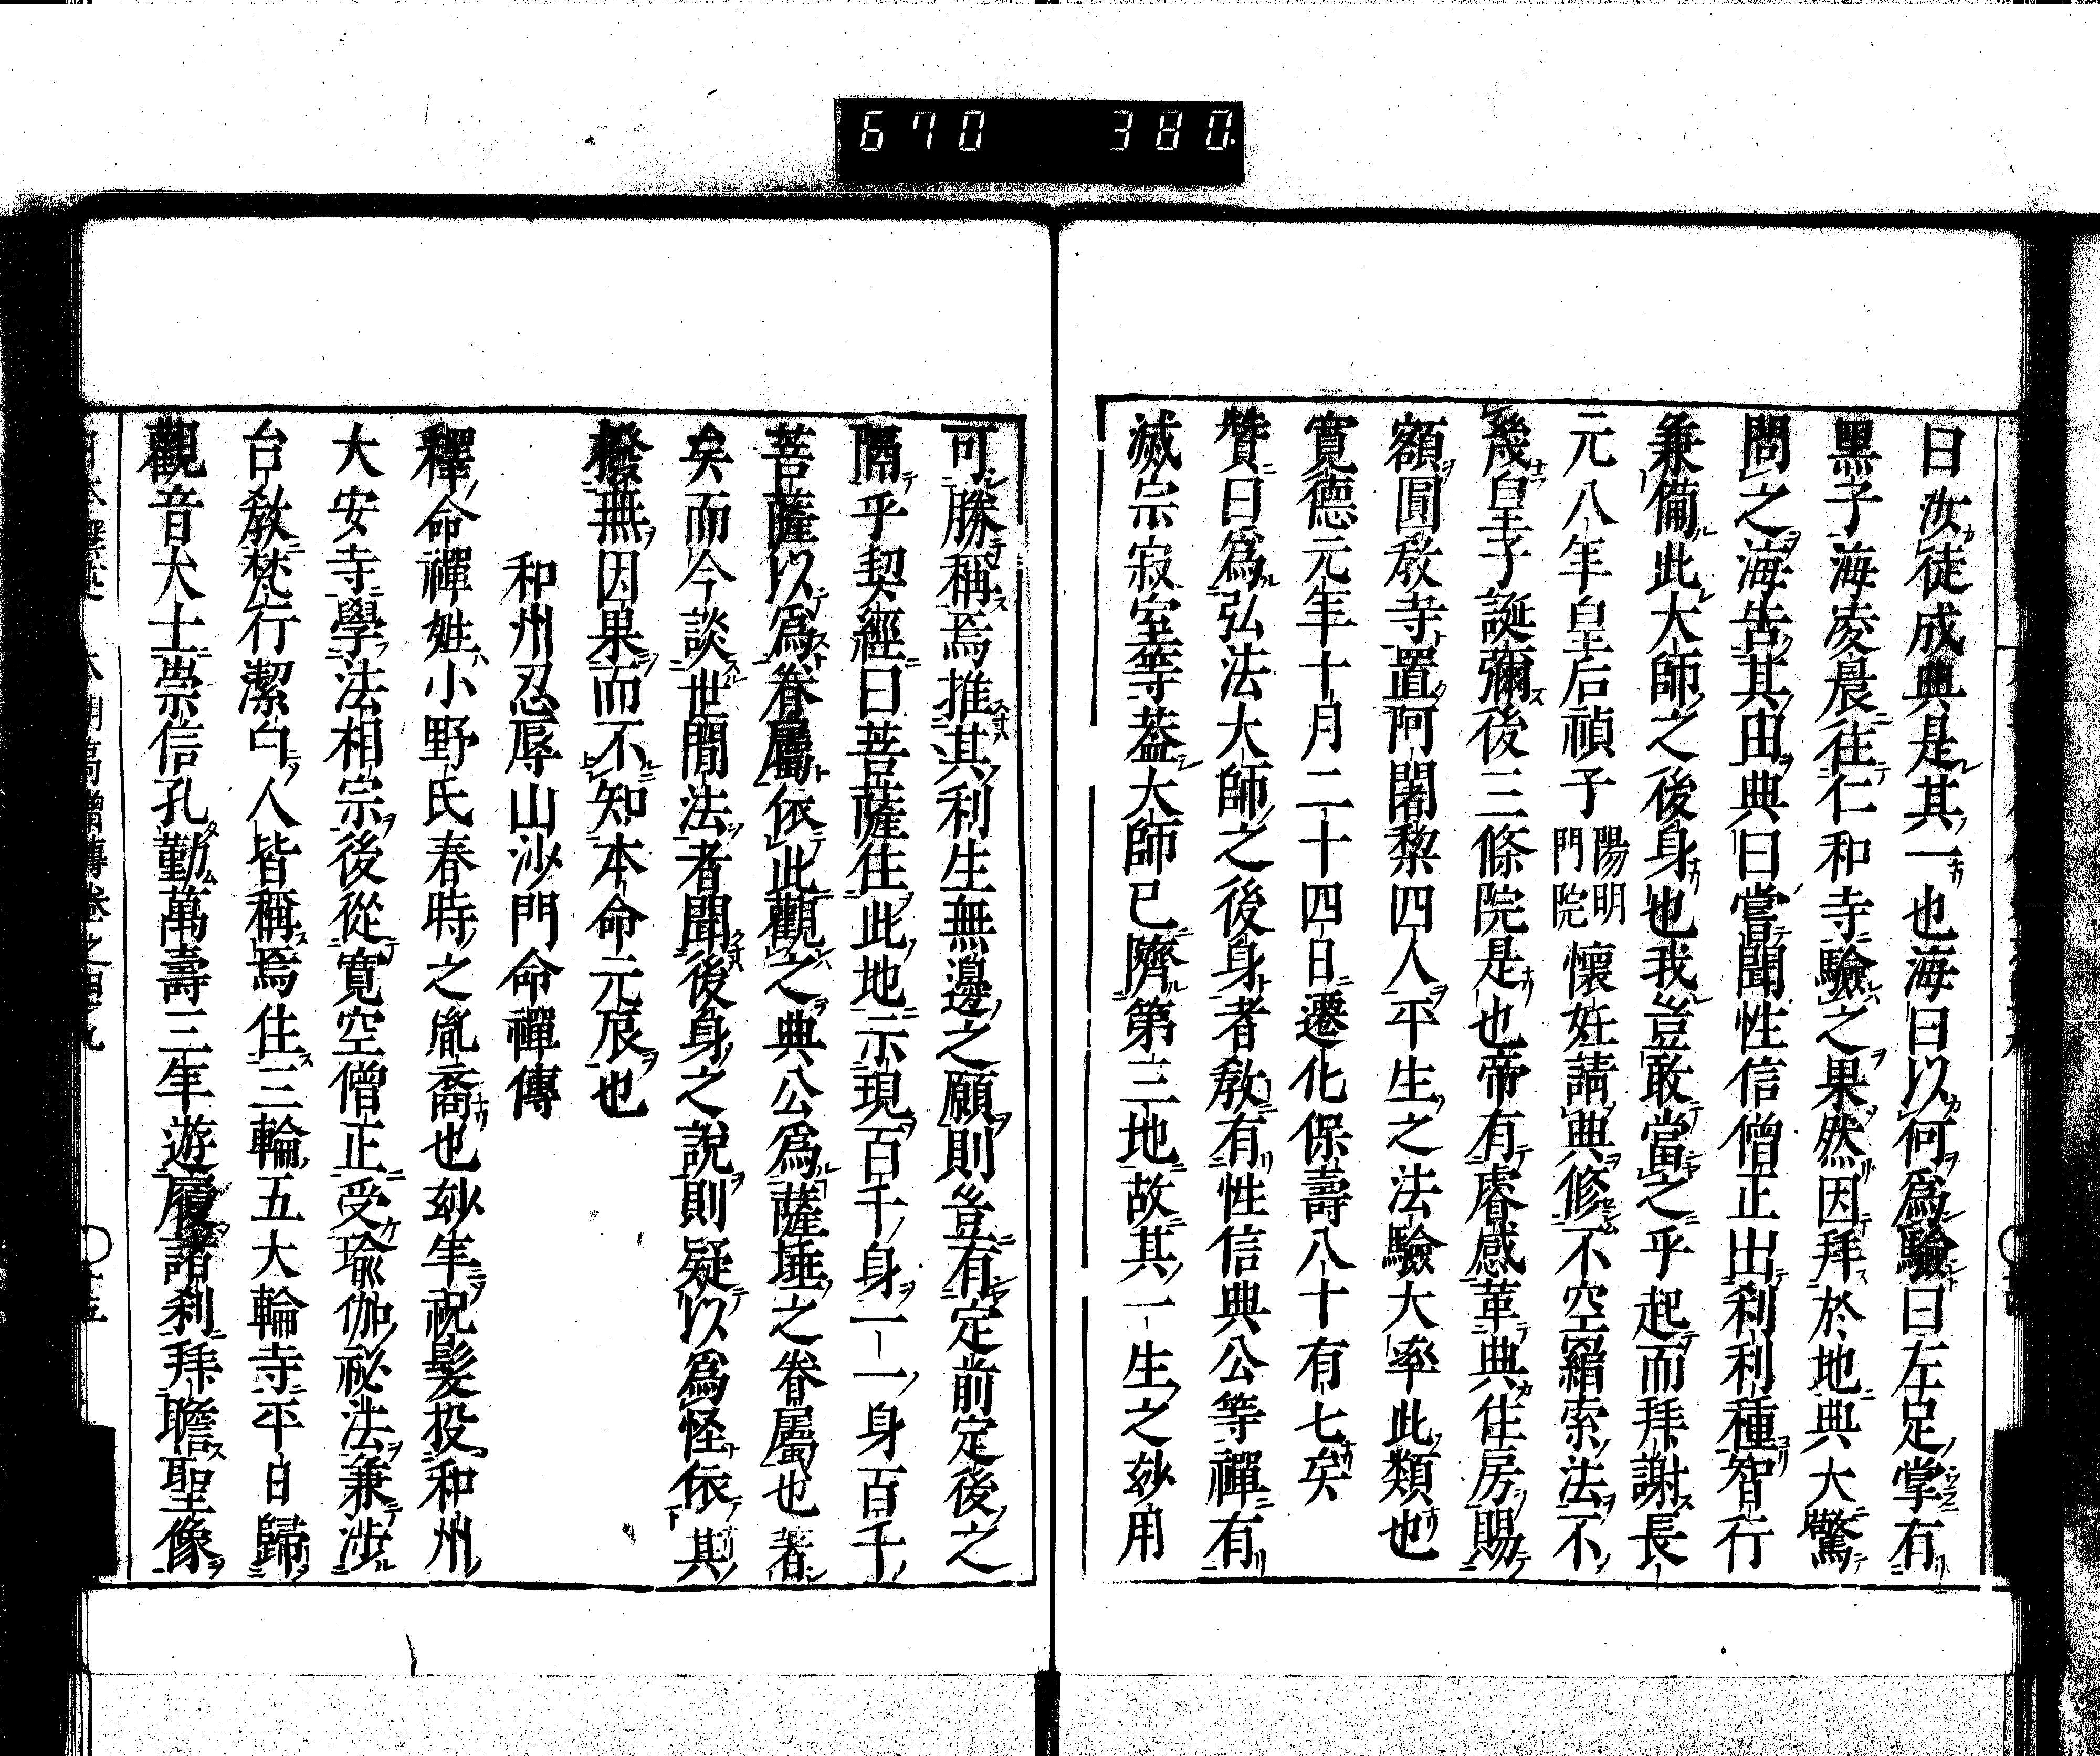 670 380
曰汝徒成典是其一也海曰以何爲驗曰左足掌有
黑子海凌晨往仁和寺驗之果然因拜於地典大驚
問之海告其由典曰嘗聞性信僧正出利利種智行
兼備此大師之後身也我豈敢當之乎起而拜謝長
元八年皇后禎子陽明門院懷妊請典修不空羂索法不
幾皇子誕彌後三條院是也帝有睿感革典住房賜
額圓教寺置阿闍黎四人平生之法驗大率此類也
寬德元年十月二十四日遷化保壽八十有七矣
贊曰爲弘法大師之後身者教有性信典公等禪有
滅宗寂室等葢大師已隮第三地故其一生之玅用
可勝稱焉推其利生無邊之願則豈有定前定後之
隔乎契經曰菩薩住此地示現百千身一一身百千
菩薩以爲眷屬依此觀之典公爲薩埵之眷屬也著
矣而今談世間法者聞後身之說則疑以爲怪依其
撥無因果而不知本命元辰也
和州忍辱山沙門命禪傳
釋命禪姓小野氏春時之胤裔也玅年祝髮投和州
大安寺學法相宗後從寬空僧正受瑜伽祕法兼涉
台教梵行潔白人皆稱焉住三輪五大輪寺平日歸
觀音大士崇信孔勤萬壽三年遊履諸刹拜瞻聖像